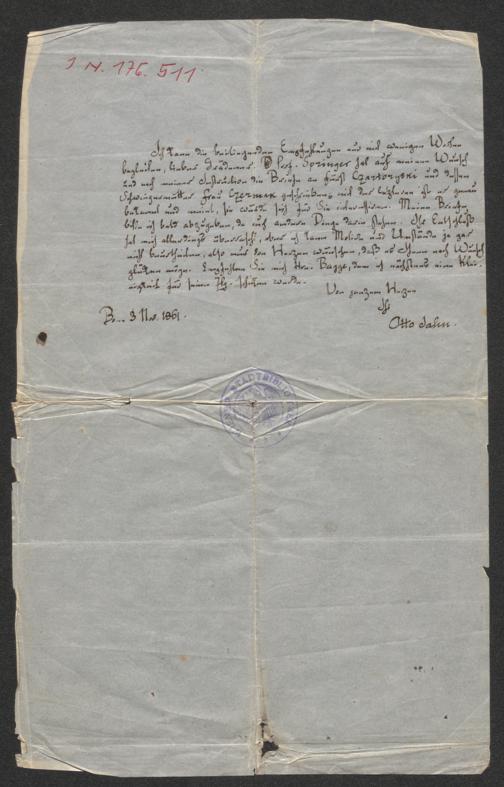 J N. 176.511
Ich kann die beiliegenden Empfehlungen nur mit wenigen Worten
begleiten, lieber Grädener. Prof. Springer hat auf meinen Wunsch
und nach meiner Instruction die Briefe an Fürst Czartoryski und dessen
Schwiegermutter Frau Czermak geschrieben; mit der letzteren ist er genau
bekannt und meint, sie würde sich für Sie interessiren. Meinen Brief
bitte ich bald abzugeben, da auch andere Dinge darin stehen. Ihr Entschluß
hat mich allerdings überrascht, aber ich kann Motive und Umstände ja gar
nicht beurtheilen, also nur von Herzen wünschen, daß es Ihnen nach Wunsch
glücken möge. Empfehlen Sie mich Hrn. Bagge, dem ich nächstens eine
für seine Ztg. schicken werde.
Von ganzem Herzen
Ihr
Otto Jahn.
Bonn 3 Nov. 1861.
STADTBIBLIOTHEK